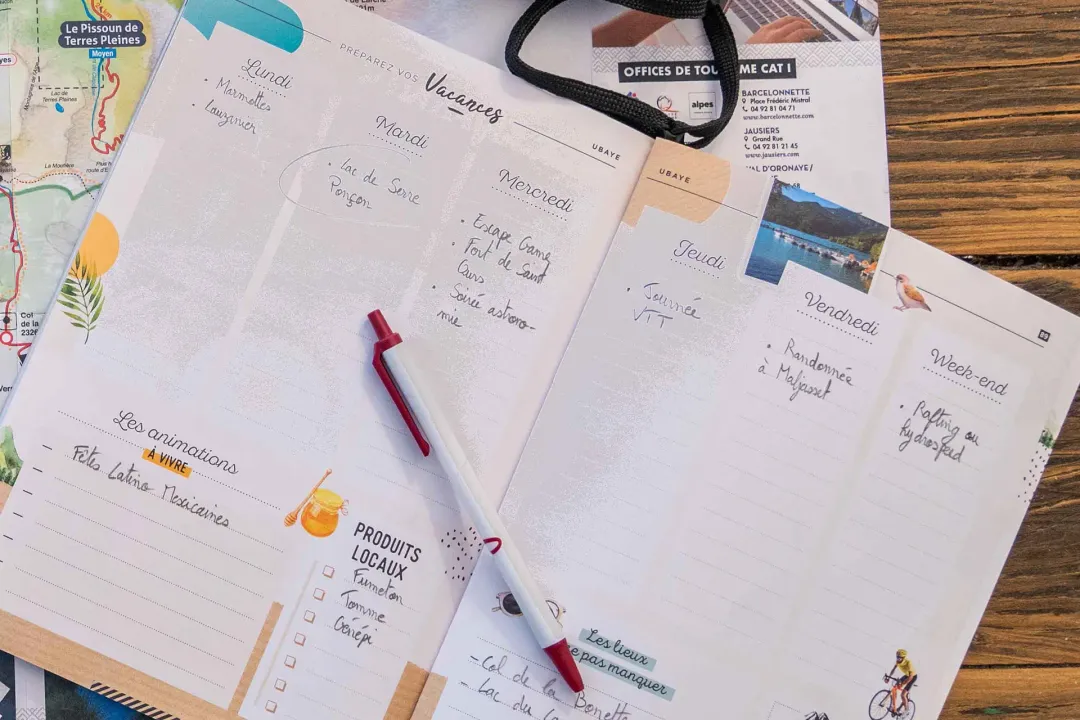 Le Pissoun de
Terres Pleines
Moyen
Lac de
Terres Pleines
La Mourière
Col
de la
OFFICES DE
ME CAT I
alpes
BARCELONNETTE
Place Frédéric Mistral
04 92 81 04 71
www.barcelonnette.com
JAUSIERS
Grand Rue
04 92 81 21 45
www.jausiers.com
VAL D'ORONAYE /
PRÉPAREZ VOS Vacances
UBAYE
Lundi
• Marmottes
• Lauzanier
Mardi
• Lac de Serre
Ponçon
Mercredi
• Escape Game
• Fort de Saint
Ours
• Soirée astrono-
mie
Les animations
À VIVRE
Fêtes Latino Mexicaines
PRODUITS
LOCAUX
Fumeton
Tomme
Génépi
UBAYE
Jeudi
• Journée
VTT
Vendredi
• Randonnée
à Maljasset
Week-end
• Rafting ou
hydrospeed
Les lieux
ne pas manquer
- Col de la Bonette
- Lac du